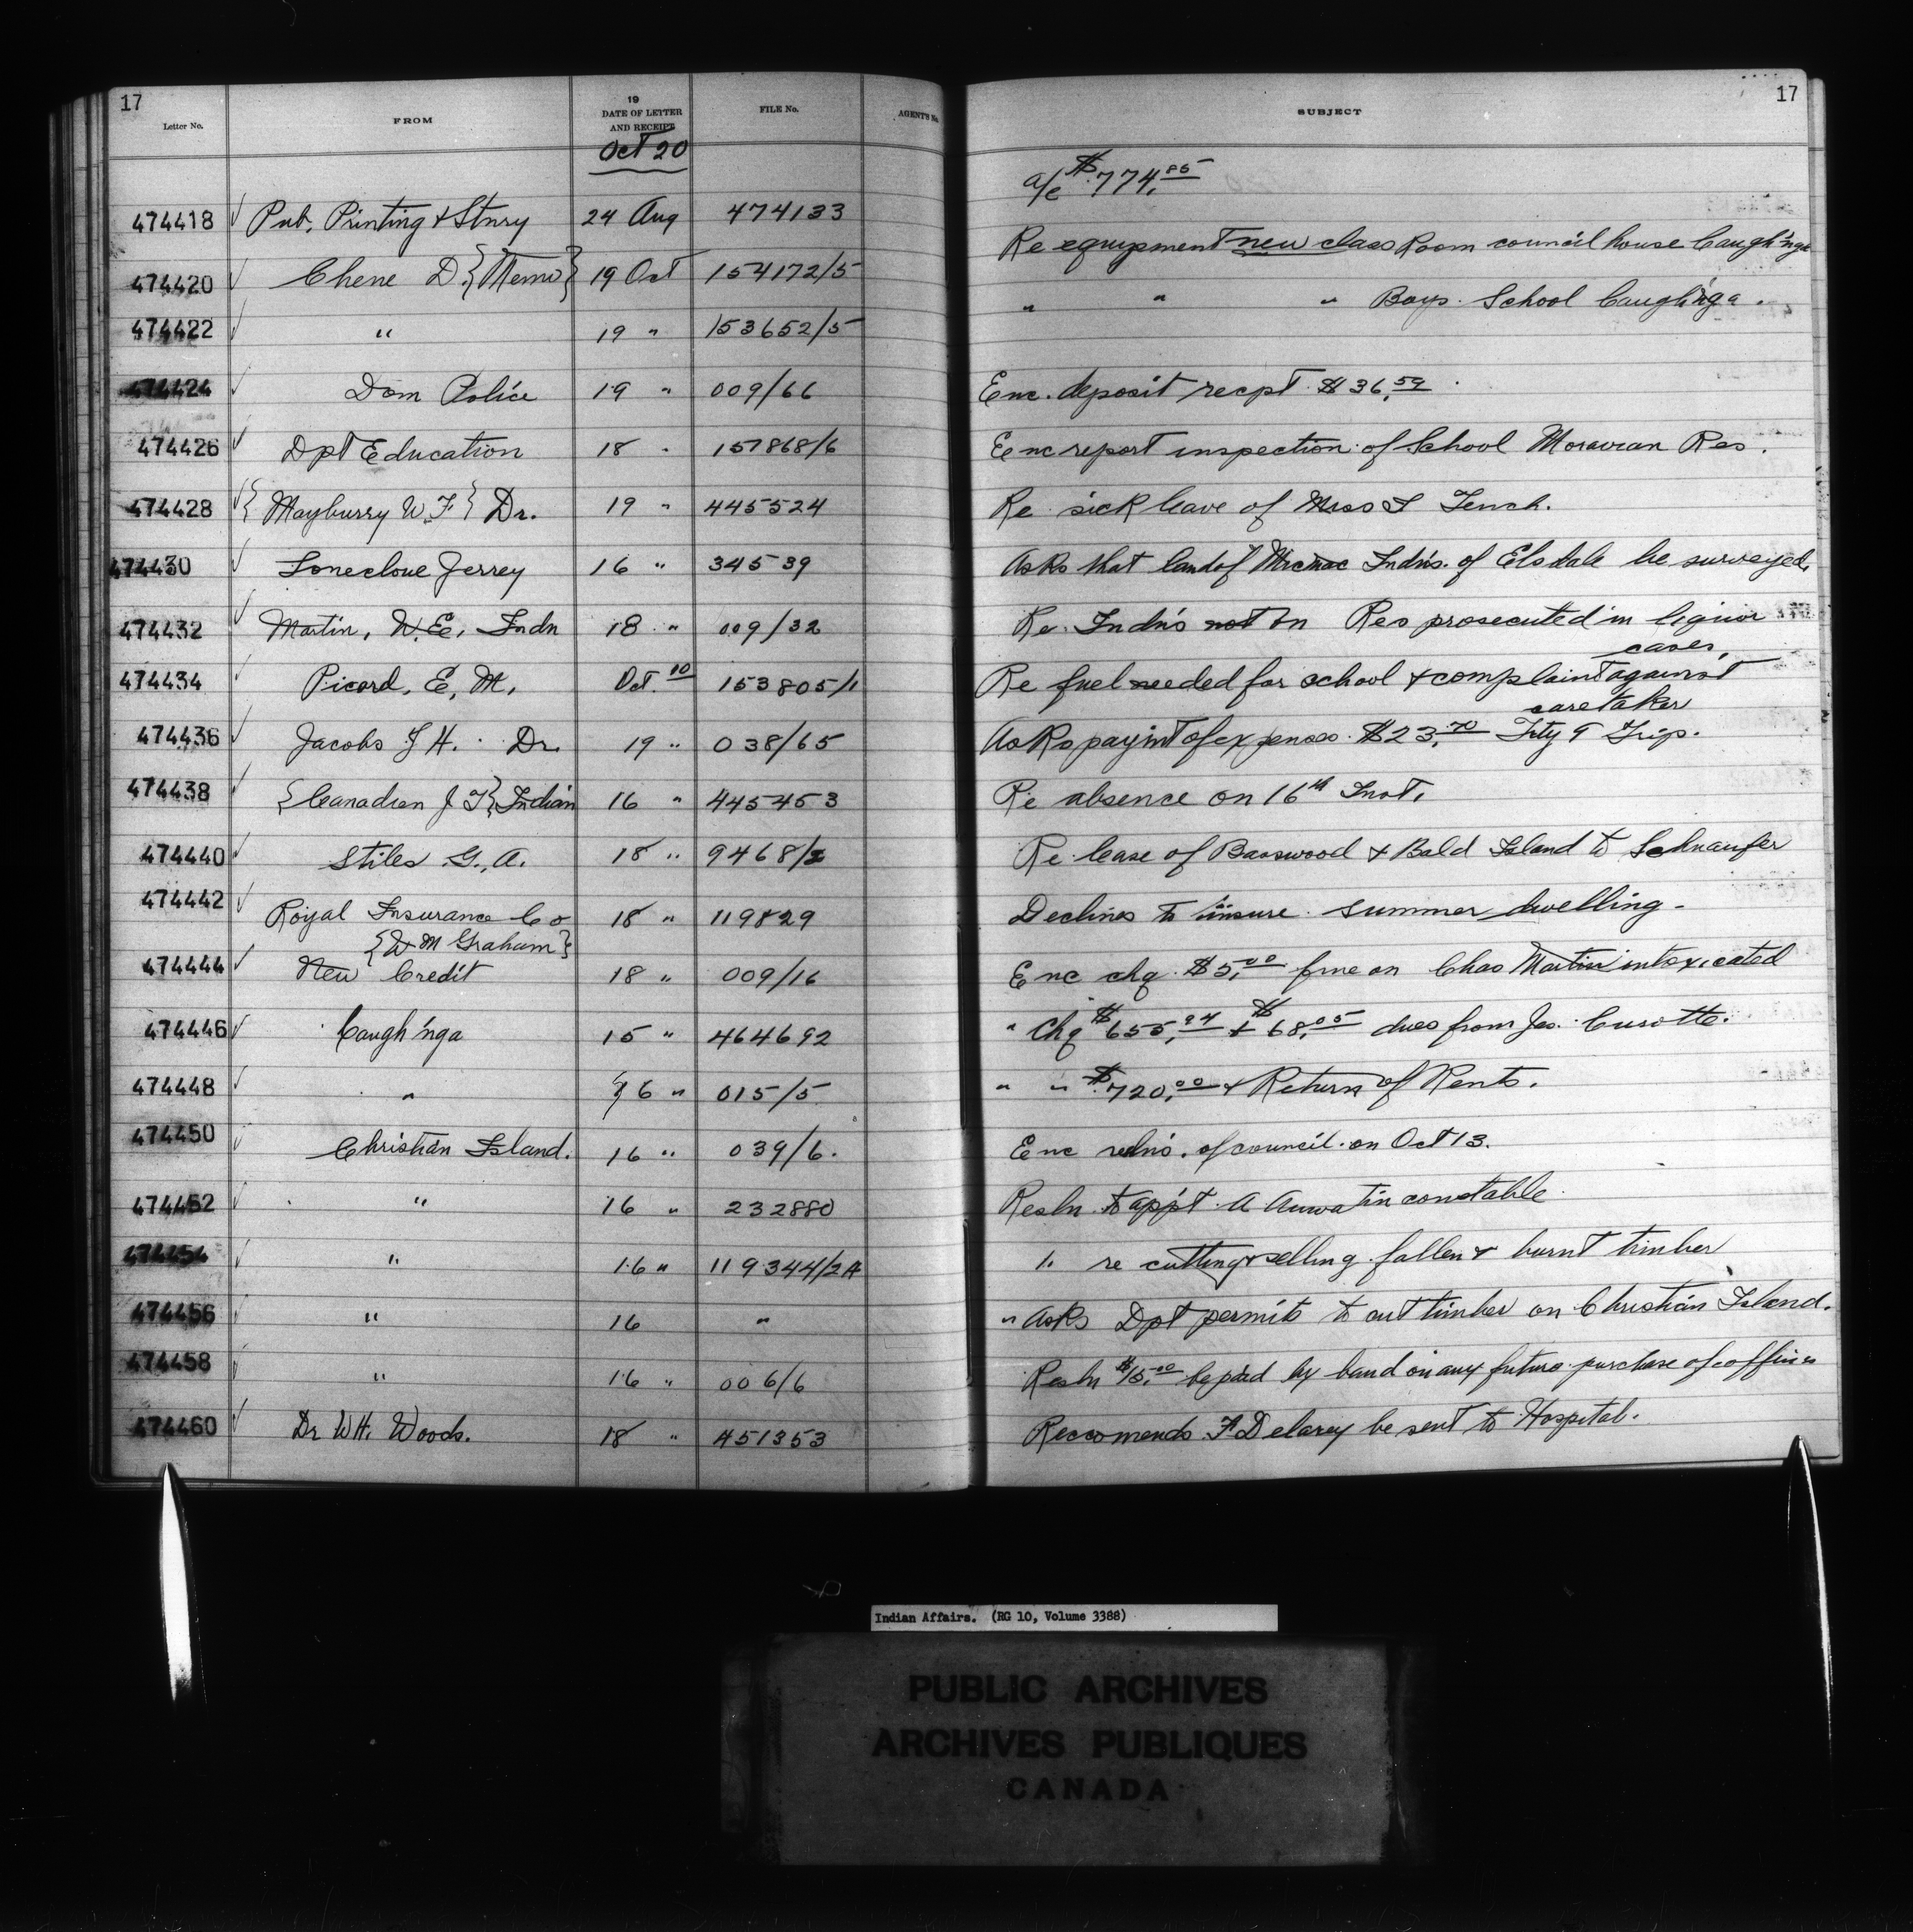 17
Letter No. FROM 19 DATE OF LETTER AND RECEIPT FILE No. AGENT'S No. SUBJECT 17
Oct 20
474418 ✓ Pub. Printing & Stnry 24 Aug 474133 a/c $774.85
474420 ✓ Chene D. {Memo} 19 Oct 154172/5 Re equipment new class Room council house Caugh'nga
474422 ✓ " 19 " 153652/5 " " " Boys School Caugh'nga.
474424 ✓ Dom Police 19 " 009/66 Enc. deposit recpt $36.59
474426 ✓ Dpt Education 18 " 157868/6 Enc report inspection of School Moravian Res.
474428 ✓ {Mayburry W.F} Dr. 19 " 445524 Re sick leave of Miss Tench.
474430 ✓ Lonecloue Jerrey 16 " 34539 Asks that land of Micmac Indns. of Elsdale be surveyed.
474432 ✓ Martin, W.E. Indn 18 " 009/32 Re Indns not on Res prosecuted in liquor
cases.
474434 ✓ Picard, E, M, Oct. 10 153805/1 Re fuel needed for school & complaint against
caretaker
474436 ✓ Jacobs H. Dr. 19 " 038/65 Asks paymt of expenses $23.70 Trip.
474438 ✓ {Canadian J T} Indian 16 " 445453 Re absence on 16th Inst.
474440 ✓ Stiles G, A. 18 " 9468/2 Re lease of Basswood & Bald Island to Schnaufer
474442 ✓ Royal Insurance Co 18 " 119829 Declines to insure summer dwelling -
{W M Graham}
474444 ✓ New Credit 18 " 009/16 Enc chq $5.00 fine on Chas Martin intoxicated
474446 ✓ Caugh'nga 15 " 464692 " Chq $655.94 & $68.05 dues from Jas. Curotte.
474448 ✓ " 16 " 015/5 " " $720.00 & Return of Rents.
474450 ✓ Christian Island. 16 " 039/6. Enc relns. of council on Oct 13.
474452 ✓ " 16 " 232880 Resln to app't A Auwatin constable
474454 ✓ " 16 " 119344/2A " re cutting & selling fallen & burnt timber
474456 ✓ " 16 " " Asks Dpt permits to cut timber on Christian Island.
474458 ✓ " 16 " 006/6 Resln $15.00 be paid by band on any future purchase of coffins
474460 ✓ Dr WH. Woods. 18 " 451353 Reccomends F Delarey be sent to Hospital.
Indian Affairs. (RG 10, Volume 3388)
PUBLIC ARCHIVES
ARCHIVES PUBLIQUES
CANADA